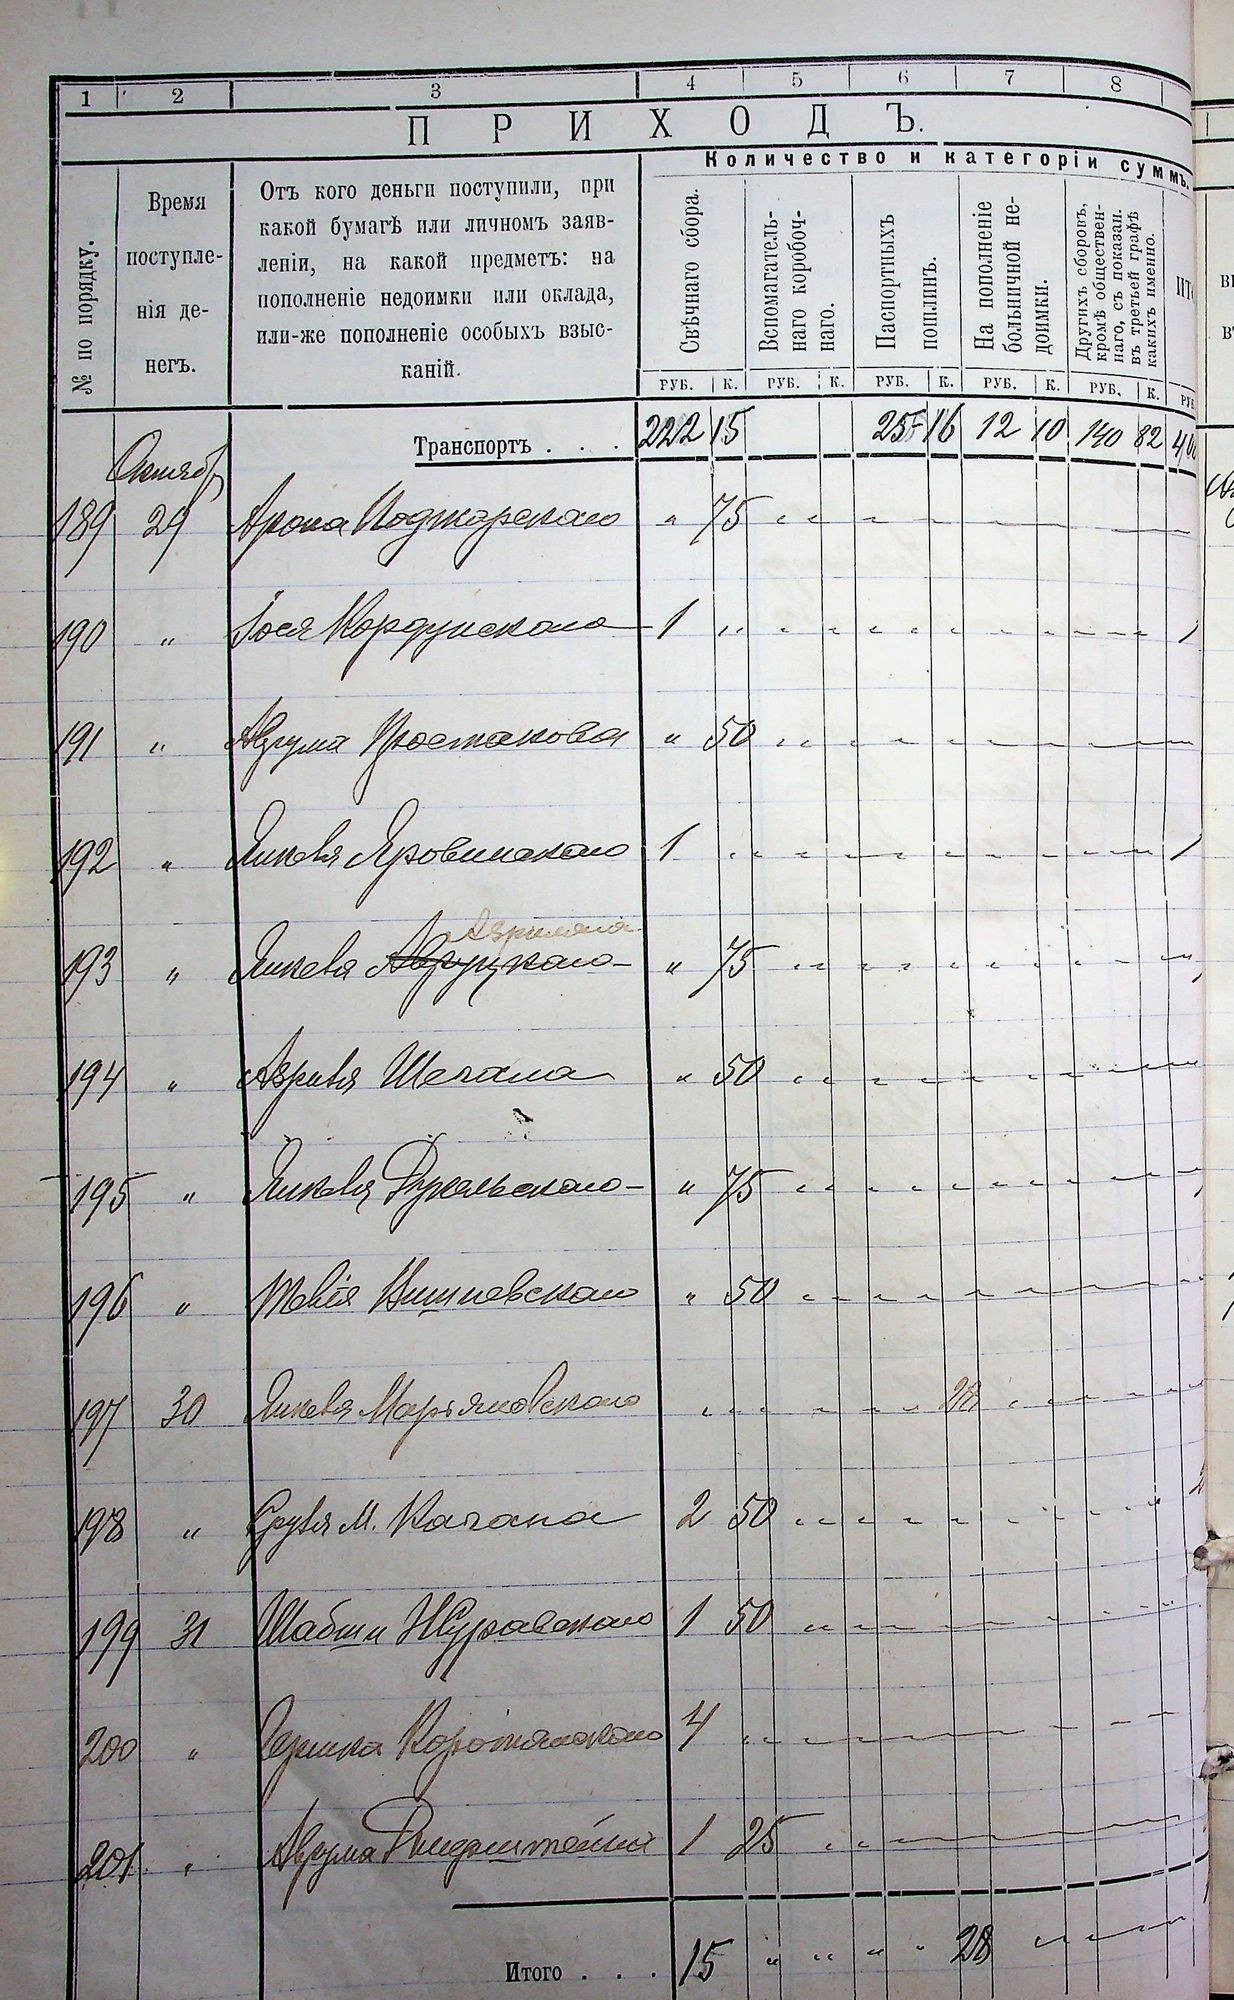 1 2 3 4 5 6 7 8
ПРИХОДЪ.
Количество и категоріи суммъ.
№ по порядку.
Время поступле-
нія де-
негъ.
Отъ кого деньги поступили, при
какой бумагѣ или личномъ заяв-
леніи, на какой предметъ: на
пополненіе недоимки или оклада,
или-же пополненіе особыхъ взыс-
каній.
Свѣчнаго сбора.
Вспомагатель-
наго коробоч-
наго.
Паспортныхъ
пошлинъ.
На пополненіе
больничной не-
доимки.
Другихъ сборовъ,
кромѣ обществен-
наго, съ показан.
въ третьей графѣ
какихъ именно.
РУБ. К. РУБ. К. РУБ. К. РУБ. К. РУБ. К. РУБ.
Транспортъ . . . 222 15 255 16 12 10 140 82
Октябр
189 29 Арона Поджарскаго " 75
190 " Іося Кордунскаго 1 " 1
191 " Аврума Простакова " 50
192 " Янкеля Яровинскаго 1 " 1
193 " Янкеля Авруцкаго " 75
194 " Азріеля Шегала " 50
195 " Янкеля Дукельскаго " 75
196 " Тевія Вишневскаго " 50
197 30 Янкеля Марьяновскаго 28
198 " Сруля М. Кагана 2 50
199 31 Шабши Журавскаго 1 50
200 " Гершка Коротянскаго 4 "
201 " Аврума 1 25
Итого . . . 15 " " " " 28